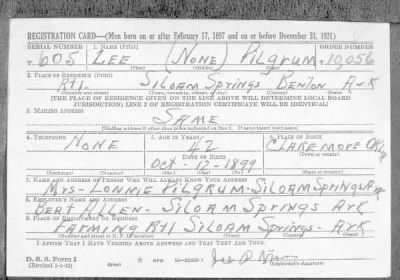 REGISTRATION CARD—(Men born on or after February 17, 1897 and on or before December 31, 1921)
SERIAL NUMBER 1. NAME (Print) ORDER NUMBER
T 605 LEE (NONE) PILGRUM 10,056
(First) (Middle) (Last)
2. PLACE OF RESIDENCE (Print)
Rt1 SILOAM SPRINGS BENTON ARK
(Number and street) (Town, township, village, or city) (County) (State)
(THE PLACE OF RESIDENCE GIVEN ON THE LINE ABOVE WILL DETERMINE LOCAL BOARD
JURISDICTION; LINE 2 OF REGISTRATION CERTIFICATE WILL BE IDENTICAL)
3. MAILING ADDRESS
SAME
(Mailing address if other than place indicated on line 2. If same insert word same)
4. TELEPHONE 5. AGE IN YEARS 6. PLACE OF BIRTH
NONE 42 CLAREMORE
DATE OF BIRTH (Town or county)
OCT - 12 - 1899
(Exchange) (Number) (Mo.) (Day) (Yr.) (State or country)
7. NAME AND ADDRESS OF PERSON WHO WILL ALWAYS KNOW YOUR ADDRESS
MRS - LONNIE PILGRUM - SILOAM SPRINGS ARK
8. EMPLOYER'S NAME AND ADDRESS
BERT ALLEN - SILOAM SPRINGS ARK
9. PLACE OF EMPLOYMENT OR BUSINESS
FARMING Rt1 SILOAM SPRINGS - ARK
(Number and street or R. F. D. number) (Town) (County) (State)
I AFFIRM THAT I HAVE VERIFIED ABOVE ANSWERS AND THAT THEY ARE TRUE.
D. S. S. Form 1
(Revised) GPO (Registrant's signature)